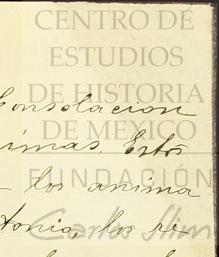 CENTRO DE
ESTUDIOS
DE HISTORIA
Consolacion
DE MEXICO
imas. Estos
FUNDACIÓN
los anima
Carlos Slim
tonio, los re-